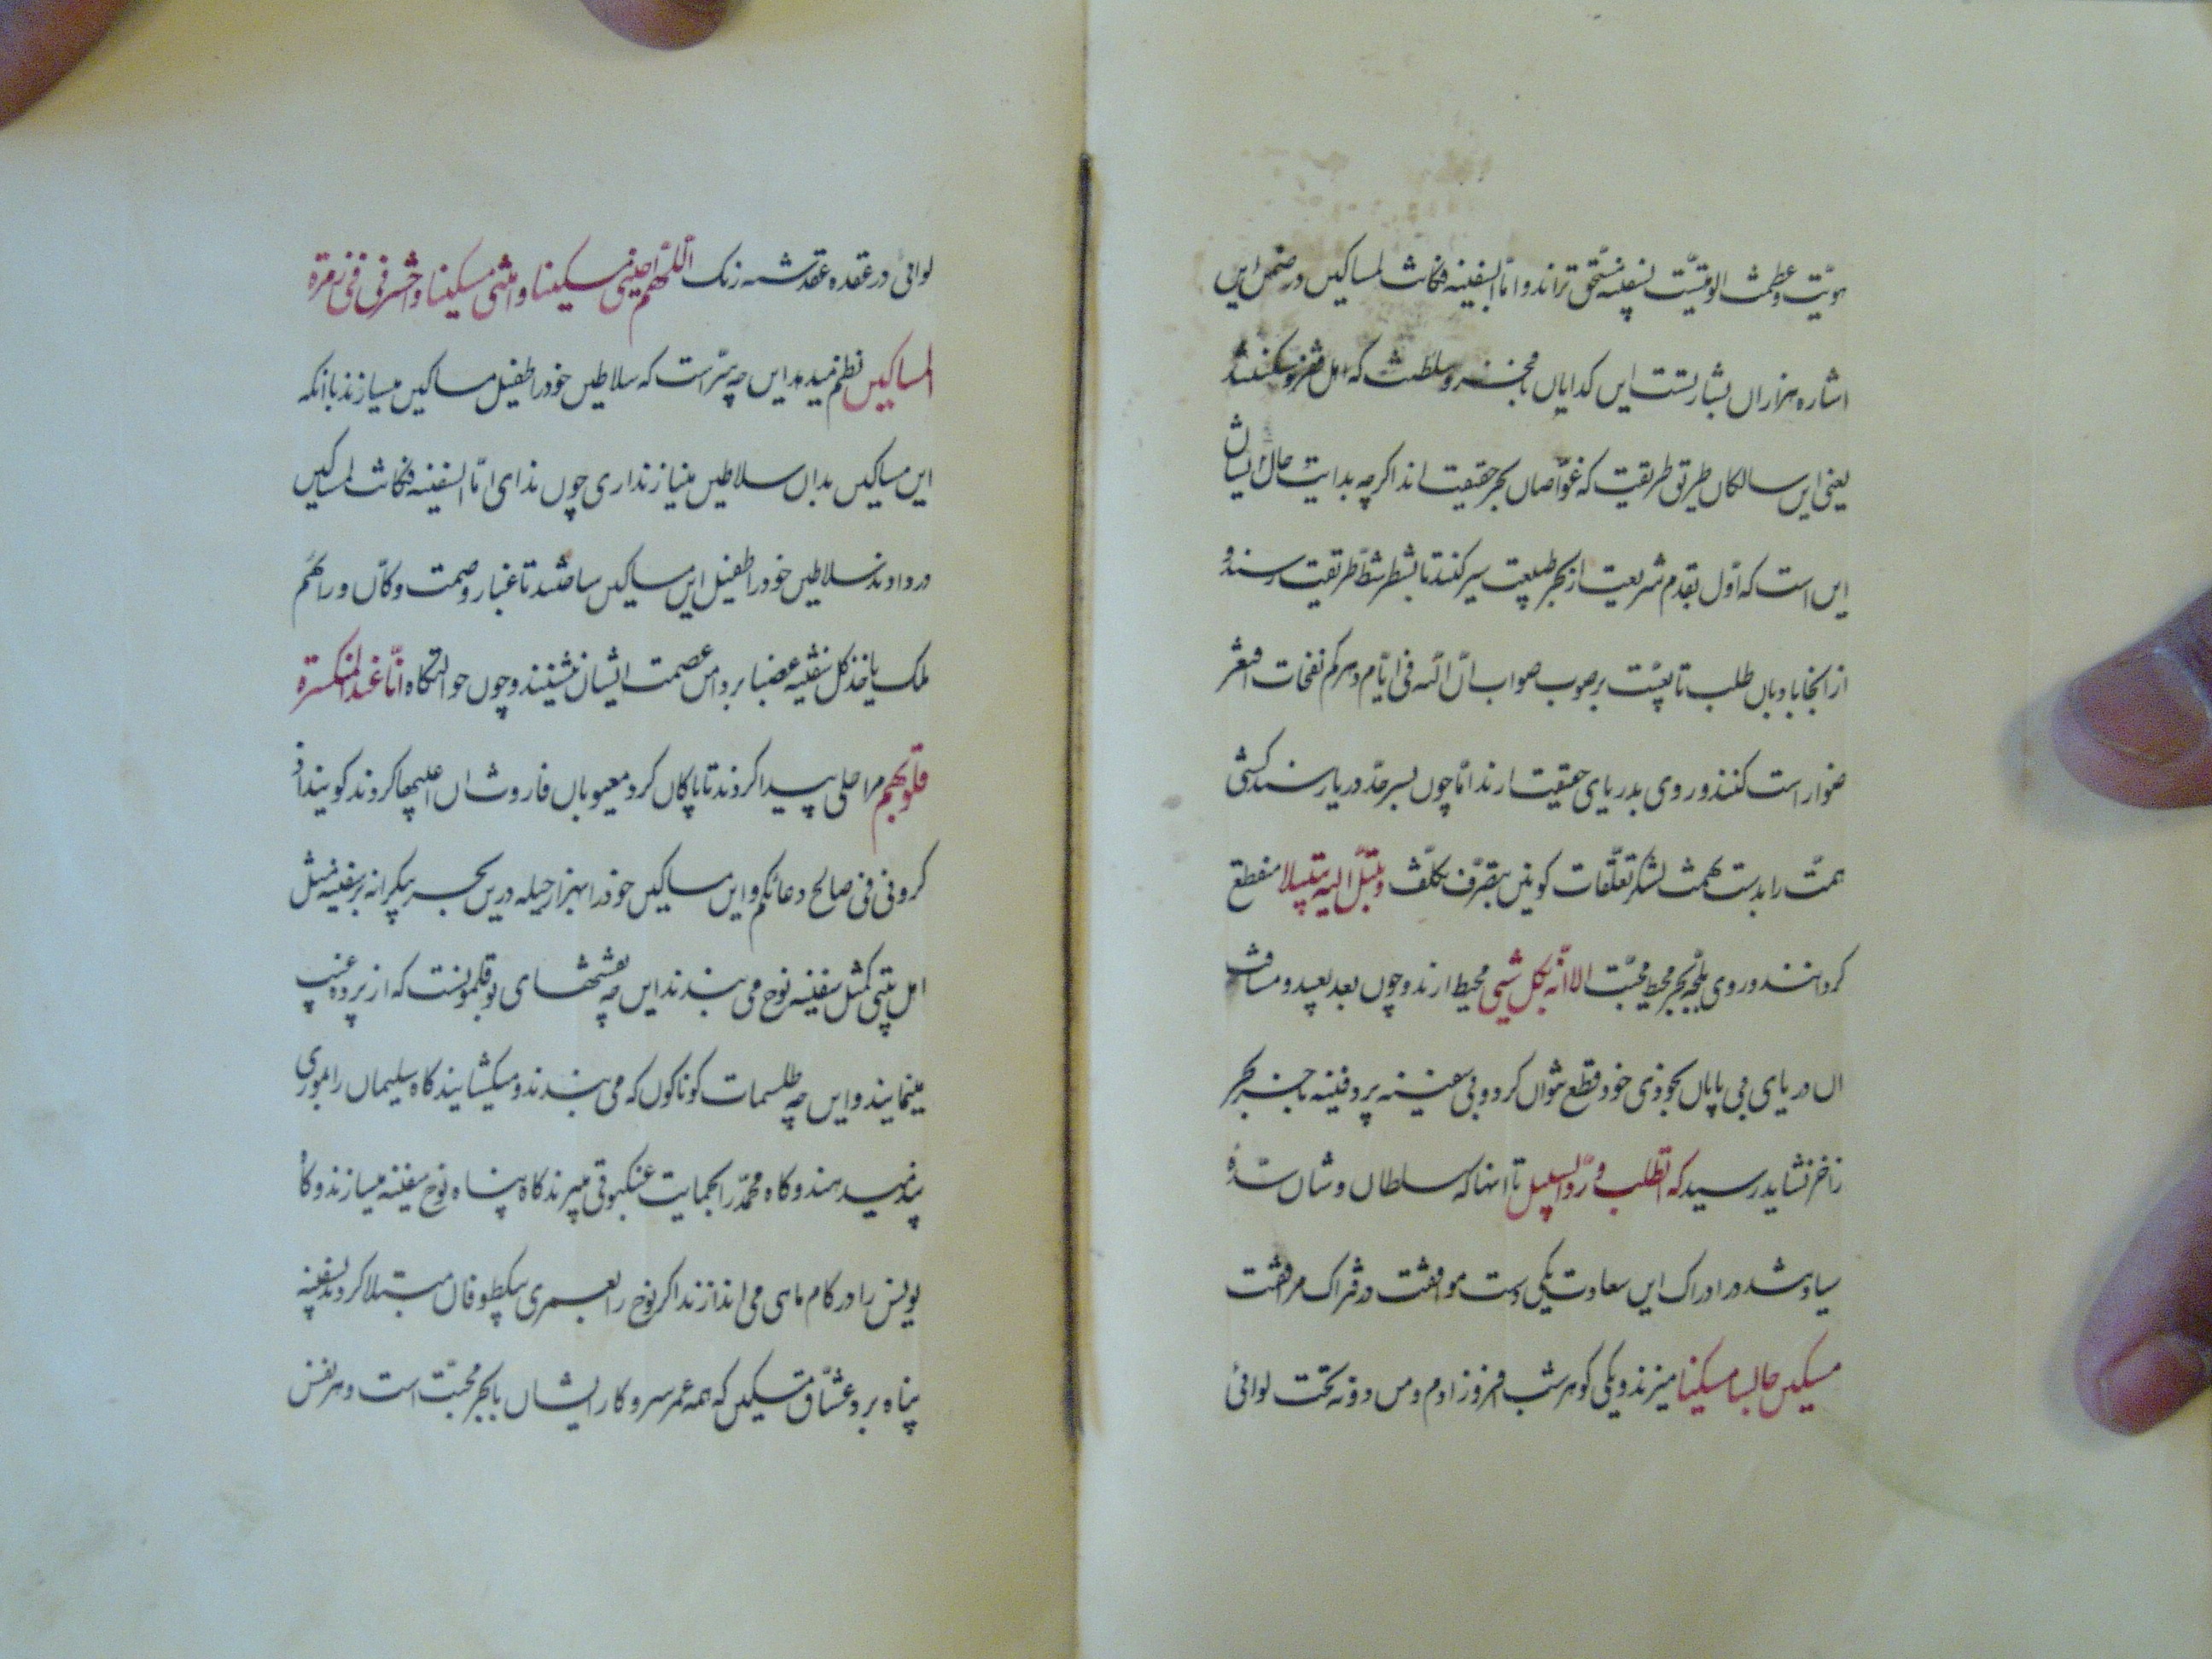 هویّت و عظمت الوهیّت بسفینه مستحق تراند و امّا السفینة فکانت لمساکین در ضمن این
اشاره هزاران بشارتست این کدایان با فخر و سلطنت که اهل
یعنی این سالکان طریق طریقت که غوّاصان بحر حقیقت اند اکرچه بدایت حال ایشان
این است که اوّل بقدم شریعت از بحر طبیعت سیر کنند تا بشطر شطّ طریقت رسند و
از انجا بادبان طلب تا بعیّت بر صوب صواب انّ الله فی ایّام دهرکم نفحات
راست کنند و روی بدریای حقیقت ارند امّا چون بسر حدّ دریا رسند کشتی
همّت را بدست تعلّقات کونین بتصرّف تکلّف و تبتّل الیه تبتیلا منقطع
کردانند و روی بلجّه بحر محیط محبّت الا انّه بکل شیی محیط ارند و چون بعد بعید و مسافت
ان دریای بی پایان بخودی خود قطع نتوان کرد و بی سفینه پر دفینه تا خبر بحر
زاخر نشاید رسید که اطلب و ردّ السبیل تا انها که سلطان وشان سدّه
سیادتند در ادراک این سعادت یکی دست موافقت در فتراک مرافقت
مسکین جالس مسکینا میزند و یکی کوهر شب افروز ادم و من دونه تحت لوائی
لوائی در عقده عقد زنک اللّهم احینی مسکینا و امتنی مسکینا و احشرنی فی زمرة
المساکین نظم میدهد این چه سرّ است که سلاطین خود را طفیل مساکین میسازند با انکه
این مساکین بدان سلاطین نیازند اری چون ندای امّا السفینة فکانت لمساکین
در دادند سلاطین خود را طفیل این مساکین ساختند تا غبار وصمت و کان وراءهم
ملک یاخذ کل سفینة غصبا بر دامن عصمت ایشان ننشیند و چون حوالتکاه انا عند المنکسرة
قلوبهم مرا حلی پیدا کردند تا پاکان کرد معیوبان فاردت ان اعیبها کردند کویند
کردنی فی صالح دعائکم و این مساکین خود را بهزار حیله درین بحر بیکرانه بر سفینه مثل
اهل بیتی کمثل سفینة نوح می بندند این چه نقشهای بوقلمونست که از پرده غیب
مینمایند و این چه طلسمات کوناکون که می بندند و میکشایند کاه سلیمان را بموری
پند میدهند و کاه محمّد را بحمایت عنکبوتی میبرند کاه پناه نوح سفینه میسازند و کاه
یونس را در کام ماهی می اندازند اکر نوح را بعمری بیکطوفان مبتلا کردند بسفینه
پناه برد عشّاق مسکین که همه عمر سر و کار ایشان با بحر محبّت است و هر نفس